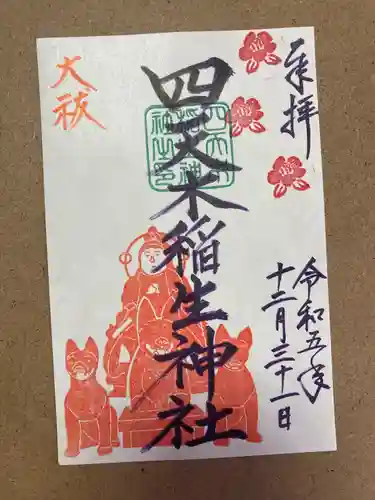 奉拝
令和五年
十二月三十一日
四文木稲生神社
大祓